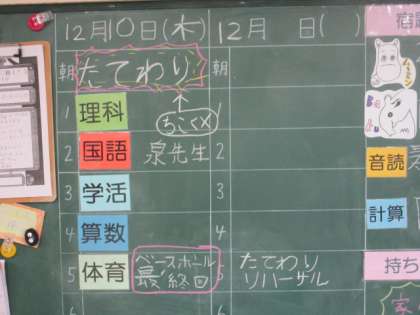 12月10日(木)
12月 日( )
朝 たてわり!!
朝
1 理科
ちこく×
1
2 国語 泉先生
2
3 学活
3
4 算数
4
5 体育 ベースボール
最終回
5 たてわり
リハーサル
6
音読
計算
持ち